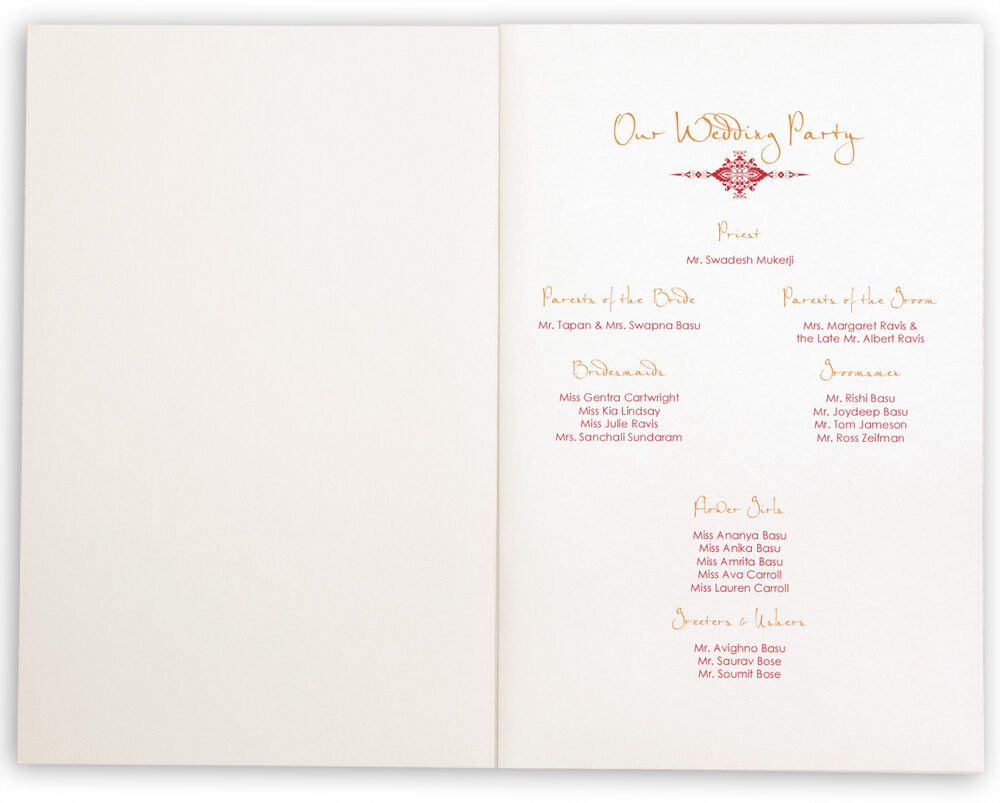 Our Wedding Party
Priest
Mr. Swadesh Mukerji
Parents of the Bride
Mr. Tapan & Mrs. Swapna Basu
Parents of the Groom
Mrs. Margaret Ravis &
the Late Mr. Albert Ravis
Bridesmaids
Miss Gentra Cartwright
Miss Kia Lindsay
Miss Julie Ravis
Mrs. Sanchali Sundaram
Groomsmen
Mr. Rishi Basu
Mr. Joydeep Basu
Mr. Tom Jameson
Mr. Ross Zeifman
Flower Girls
Miss Ananya Basu
Miss Anika Basu
Miss Amrita Basu
Miss Ava Carroll
Miss Lauren Carroll
Greeters & Ushers
Mr. Avighno Basu
Mr. Saurav Bose
Mr. Soumit Bose